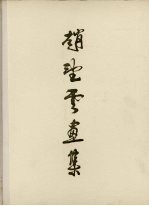 趙望雲畫集